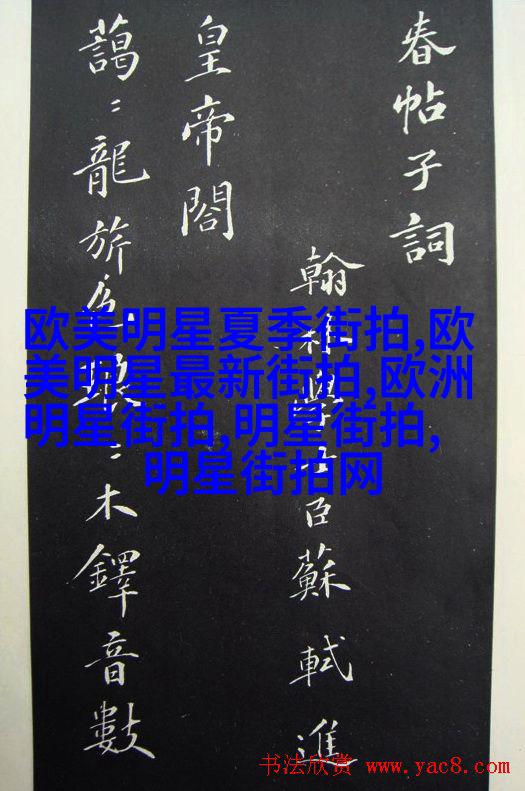 春帖子詞
翰林學士臣蘇軾進
皇帝閤
藹〻龍旂色琅〻木鐸音數
欧美明星夏季街拍,欧
美明星最新街拍,欧洲
明星街拍,明星街拍,
明星街拍网
书法欣赏 www.yac8.com